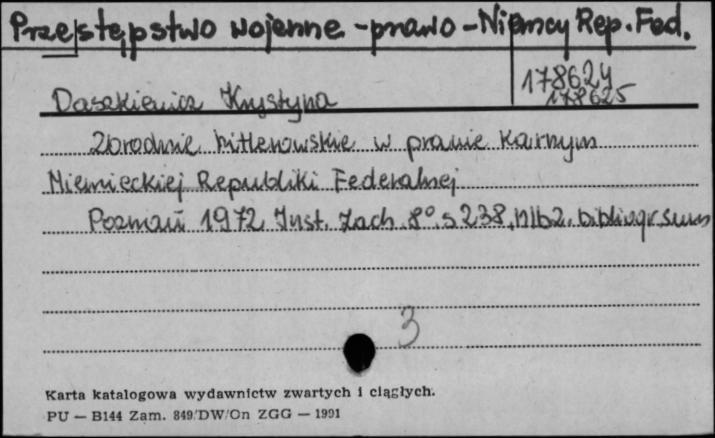 Przestępstwo wojenne - prawo - Niemcy Rep. Fed.
178624
178625
Daszkiewicz Krystyna
Zbrodnie hitlerowskie w prawie karnym
Niemieckiej Republiki Federalnej
Poznań 1972, Inst. Zach. 8°, s 238, nlb2, bibliogr. sum
3
Karta katalogowa wydawnictw zwartych i ciągłych.
PU — B144 Zam. 849/DW/On ZGG — 1991